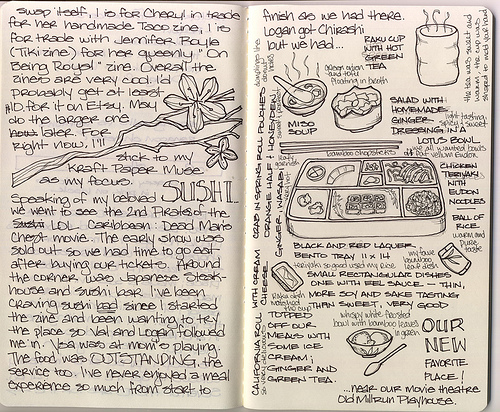 swap itself, 1 is for Cheryl in trade
for her handmade Taco zine, 1 is
for trade with Jennifer Royle
(Tikizine) for her queenly "On
Being Royal" zine. Overall the
zines are very cool. I'd
probably get at least
$10. for it on Etsy. May
do the larger one
later. For
right now, I'll
stick to my
Kraft Paper Muse
as my focus.
SUSHI...
Speaking of my beloved
we went to see the 2nd Pirates of the
LOL. Caribbean: Dead Man's
Chest movie. The early show was
sold out so we had time to eat
after buying our tickets. Around
the corner was a Japanese Steak-
house and sushi bar. I've been
craving sushi bad since I started
the zine and been wanting to try
the place so Val and Logan followed
me in. Ysa was at mom's playing.
The food was OUTSTANDING, the
service too. I've never enjoyed a meal
experience so much from start to
finish as we had there.
Logan got Chirashi
but we had...
RAKU CUP
WITH HOT
GREEN
TEA
the tea was sweet and
warm, the cup was
shaped to mold your hand
green onion and tofu
floating in broth
MISO
SOUP
SALAD WITH
HOMEMADE
GINGER
DRESSING IN A
LOTUS BOWL
light tasting
we all wanted bowls
bamboo chopsticks
CHICKEN
TERIYAKI
WITH
UDON
NOODLES
BALL OF
RICE
warm and
pure
taste
BLACK AND RED LAQUER
BENTO TRAY 11 x 14
SMALL RECTANGULAR DISHES
ONE WITH EEL SAUCE - THIN,
MORE SOY AND SAKE TASTING
THAN SWEET. VERY GOOD
Raku dish
matched the
cup
TOPPED
OFF OUR
MEALS WITH
SOME ICE
CREAM:
GINGER AND
GREEN TEA.
whispy white frosted
bowl with bamboo leaves
in green
OUR
NEW
FAVORITE
PLACE!
...near our movie theatre
Old Milltrun Playhouse.
CALIFORNIA ROLL
WITH CREAM
CHEESE
CRAB IN SPRING ROLL POUCHES
ORANGE HALF & HONEYDEW
GINGER, WASABI